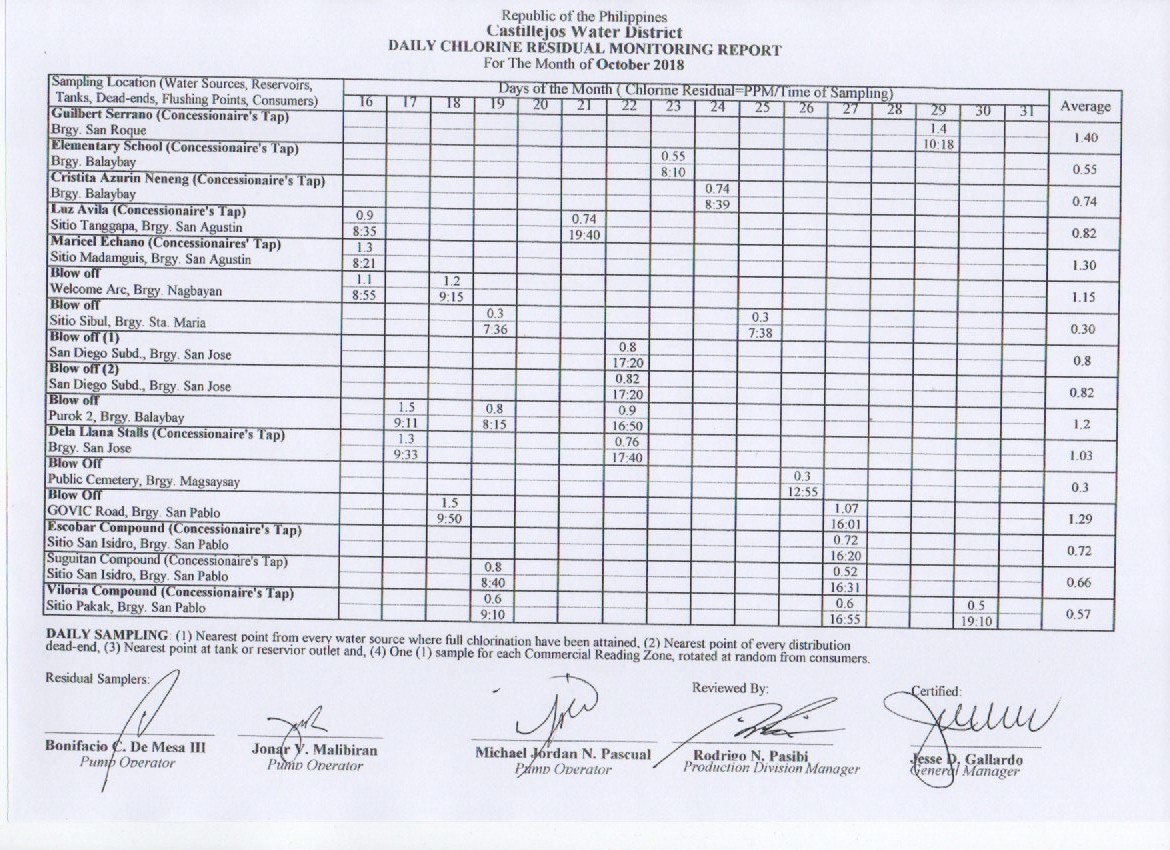 Republic of the Philippines
Castillejos Water District
DAILY CHLORINE RESIDUAL MONITORING REPORT
For The Month of October 2018
Sampling Location (Water Sources, Reservoirs, Tanks, Dead-ends, Flushing Points, Consumers) Days of the Month ( Chlorine Residual=PPM/Time of Sampling) Average
16 17 18 19 20 21 22 23 24 25 26 27 28 29 30 31
Guilbert Serrano (Concessionaire's Tap) 1.4
Brgy. San Roque 10:18 1.40
Elementary School (Concessionaire's Tap) 0.55
Brgy. Balaybay 8:10 0.55
Cristita Azurin Neneng (Concessionaire's Tap) 0.74
Brgy. Balaybay 8:39 0.74
Luz Avila (Concessionaire's Tap) 0.9 0.74
Sitio Tanggapa, Brgy. San Agustin 8:35 19:40 0.82
Maricel Echano (Concessionaires' Tap) 1.3
Sitio Madamguis, Brgy. San Agustin 8:21 1.30
Blow off 1.1 1.2
Welcome Arc, Brgy. Nagbayan 8:55 9:15 1.15
Blow off 0.3 0.3
Sitio Sibul, Brgy. Sta. Maria 7:36 7:38 0.30
Blow off (1) 0.8
San Diego Subd., Brgy. San Jose 17:20 0.8
Blow off (2) 0.82
San Diego Subd., Brgy. San Jose 17:20 0.82
Blow off 1.5 0.8 0.9
Purok 2, Brgy. Balaybay 9:11 8:15 16:50 1.2
Dela Llana Stalls (Concessionaire's Tap) 1.3 0.76
Brgy. San Jose 9:33 17:40 1.03
Blow Off 0.3
Public Cemetery, Brgy. Magsaysay 12:55 0.3
Blow Off 1.5 1.07
GOVIC Road, Brgy. San Pablo 9:50 16:01 1.29
Escobar Compound (Concessionaire's Tap) 0.72
Sitio San Isidro, Brgy. San Pablo 16:20 0.72
Suguitan Compound (Concessionaire's Tap) 0.8 0.52
Sitio San Isidro, Brgy. San Pablo 8:40 16:31 0.66
Viloria Compound (Concessionaire's Tap) 0.6 0.6 0.5
Sitio Pakak, Brgy. San Pablo 9:10 16:55 19:10 0.57
DAILY SAMPLING: (1) Nearest point from every water source where full chlorination have been attained, (2) Nearest point of every distribution
dead-end, (3) Nearest point at tank or reservior outlet and, (4) One (1) sample for each Commercial Reading Zone, rotated at random from consumers.
Residual Samplers: Reviewed By: Certified:
Bonifacio C. De Mesa III Jonar V. Malibiran Michael Jordan N. Pascual Rodrigo N. Pasibi Jesse D. Gallardo
Pump Operator Pump Operator Pump Operator Production Division Manager General Manager